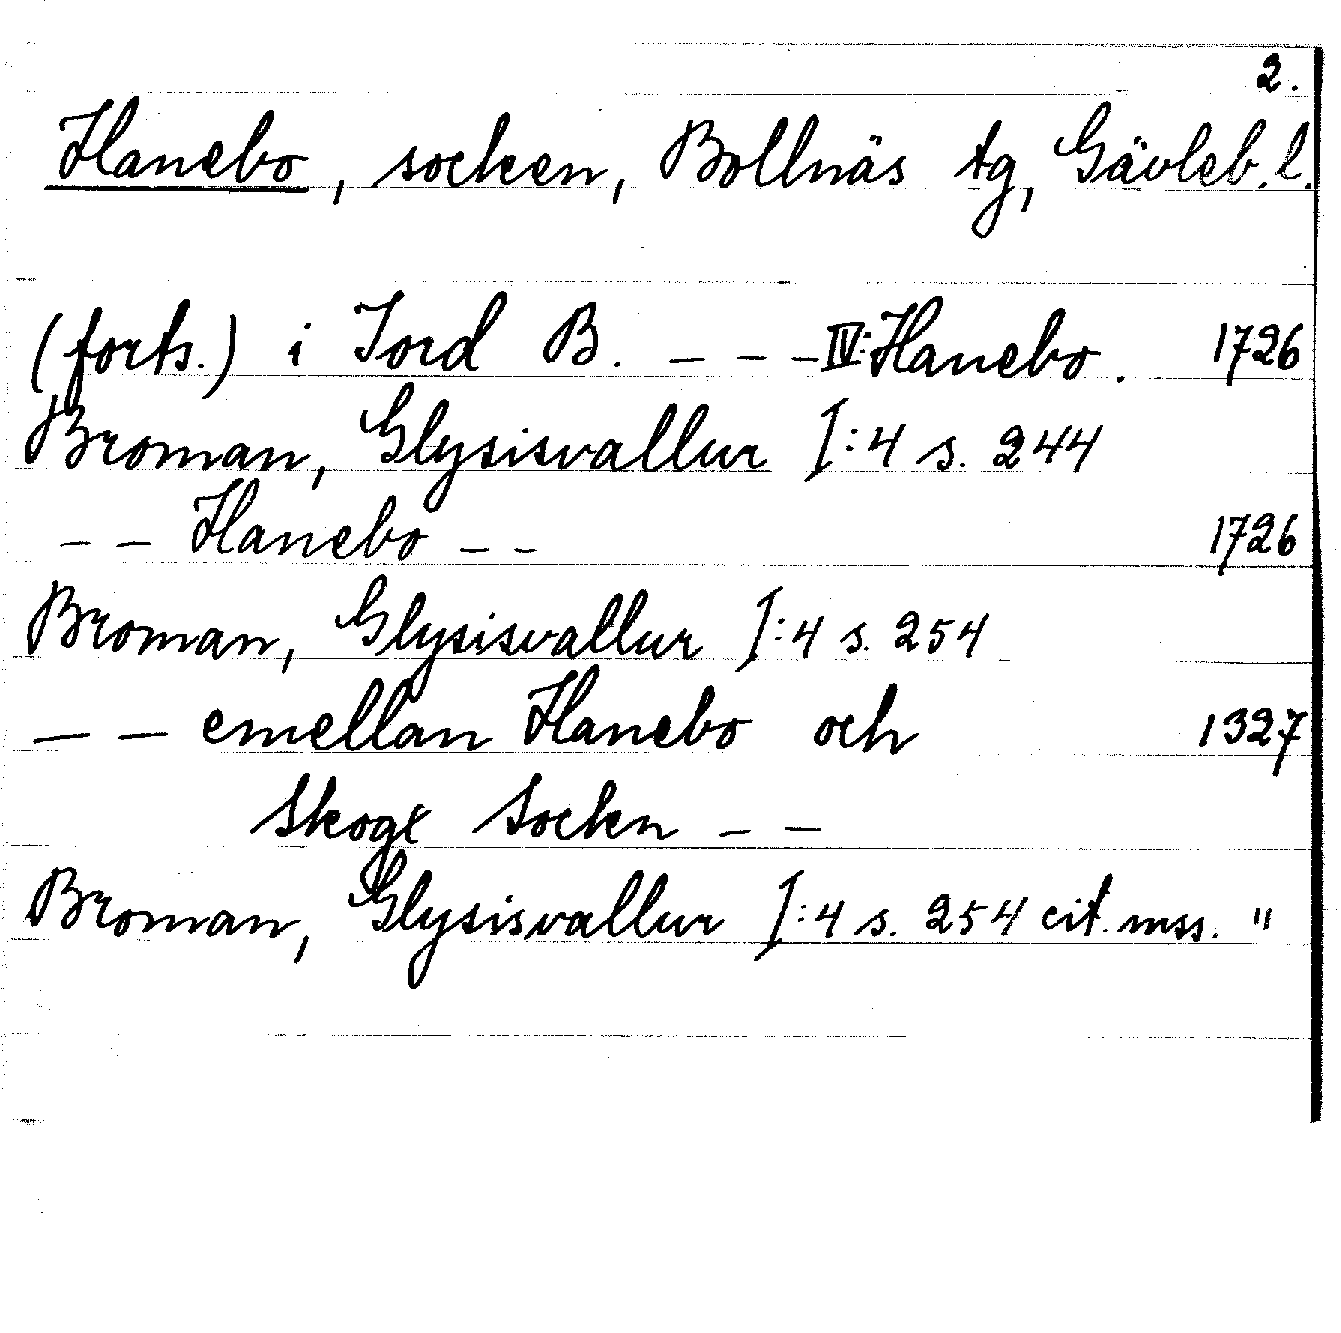 2.
Hanebo, socken, Bollnäs tg, Gävleb. l.
(forts.) i Jord B. – – – IV: Hanebo. 1726
Broman, Glysisvallur I:4 s. 244
– – Hanebo – – 1726
Broman, Glysisvallur I:4 s. 254
– – emellan Hanebo och 1327
Skoge Sockn – –
Broman, Glysisvallur I:4 s. 254 cit. mss. "